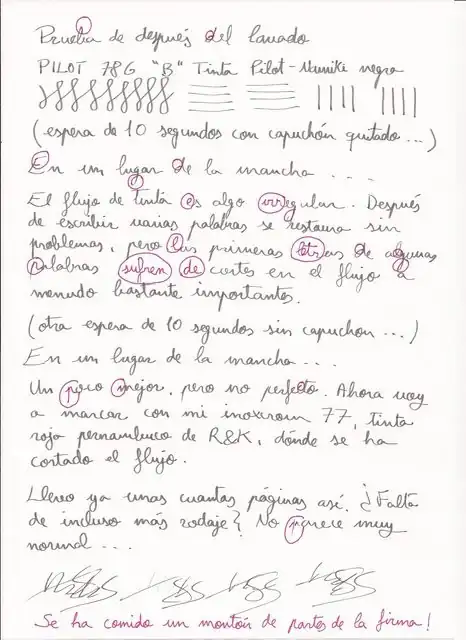 Prueba de después del lavado
PILOT 78G "B" Tinta Pilot-Namiki negra
(espera de 10 segundos con capuchón quitado...)
En un lugar de la mancha ....
El flujo de tinta es algo irregular. Después
de escribir varias palabras se restaura sin
problemas, pero las primeras letras de algunas
palabras sufren de cortes en el flujo a
menudo bastante importantes.
(otra espera de 10 segundos sin capuchon...)
En un lugar de la mancha....
Un poco mejor, pero no perfecto. Ahora voy
a marcar con mi inoxcrom 77, tinta
roja pernambuco de R&K, dónde se ha
cortado el flujo.
Llevo ya unas cuantas páginas así. ¿Falta
de incluso más rodaje? No parece muy
normal....
Se ha comido un montón de partes de la firma!